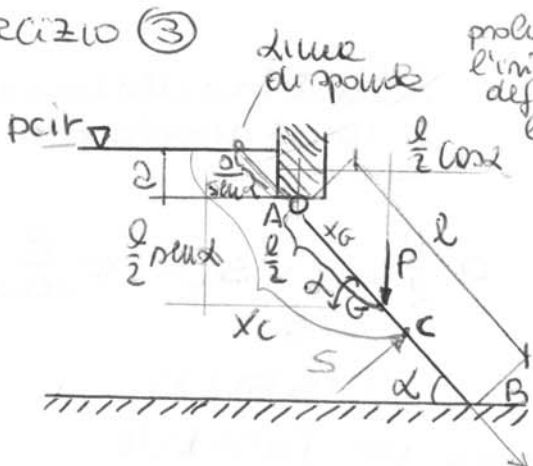 RCIZIO ③
linea
di sponda
prolu
l'in
def
pcir
a
a/senα
l/2 cosα
A
xG
l
l/2 senα
l/2
P
α
G
xC
C
S
α
B